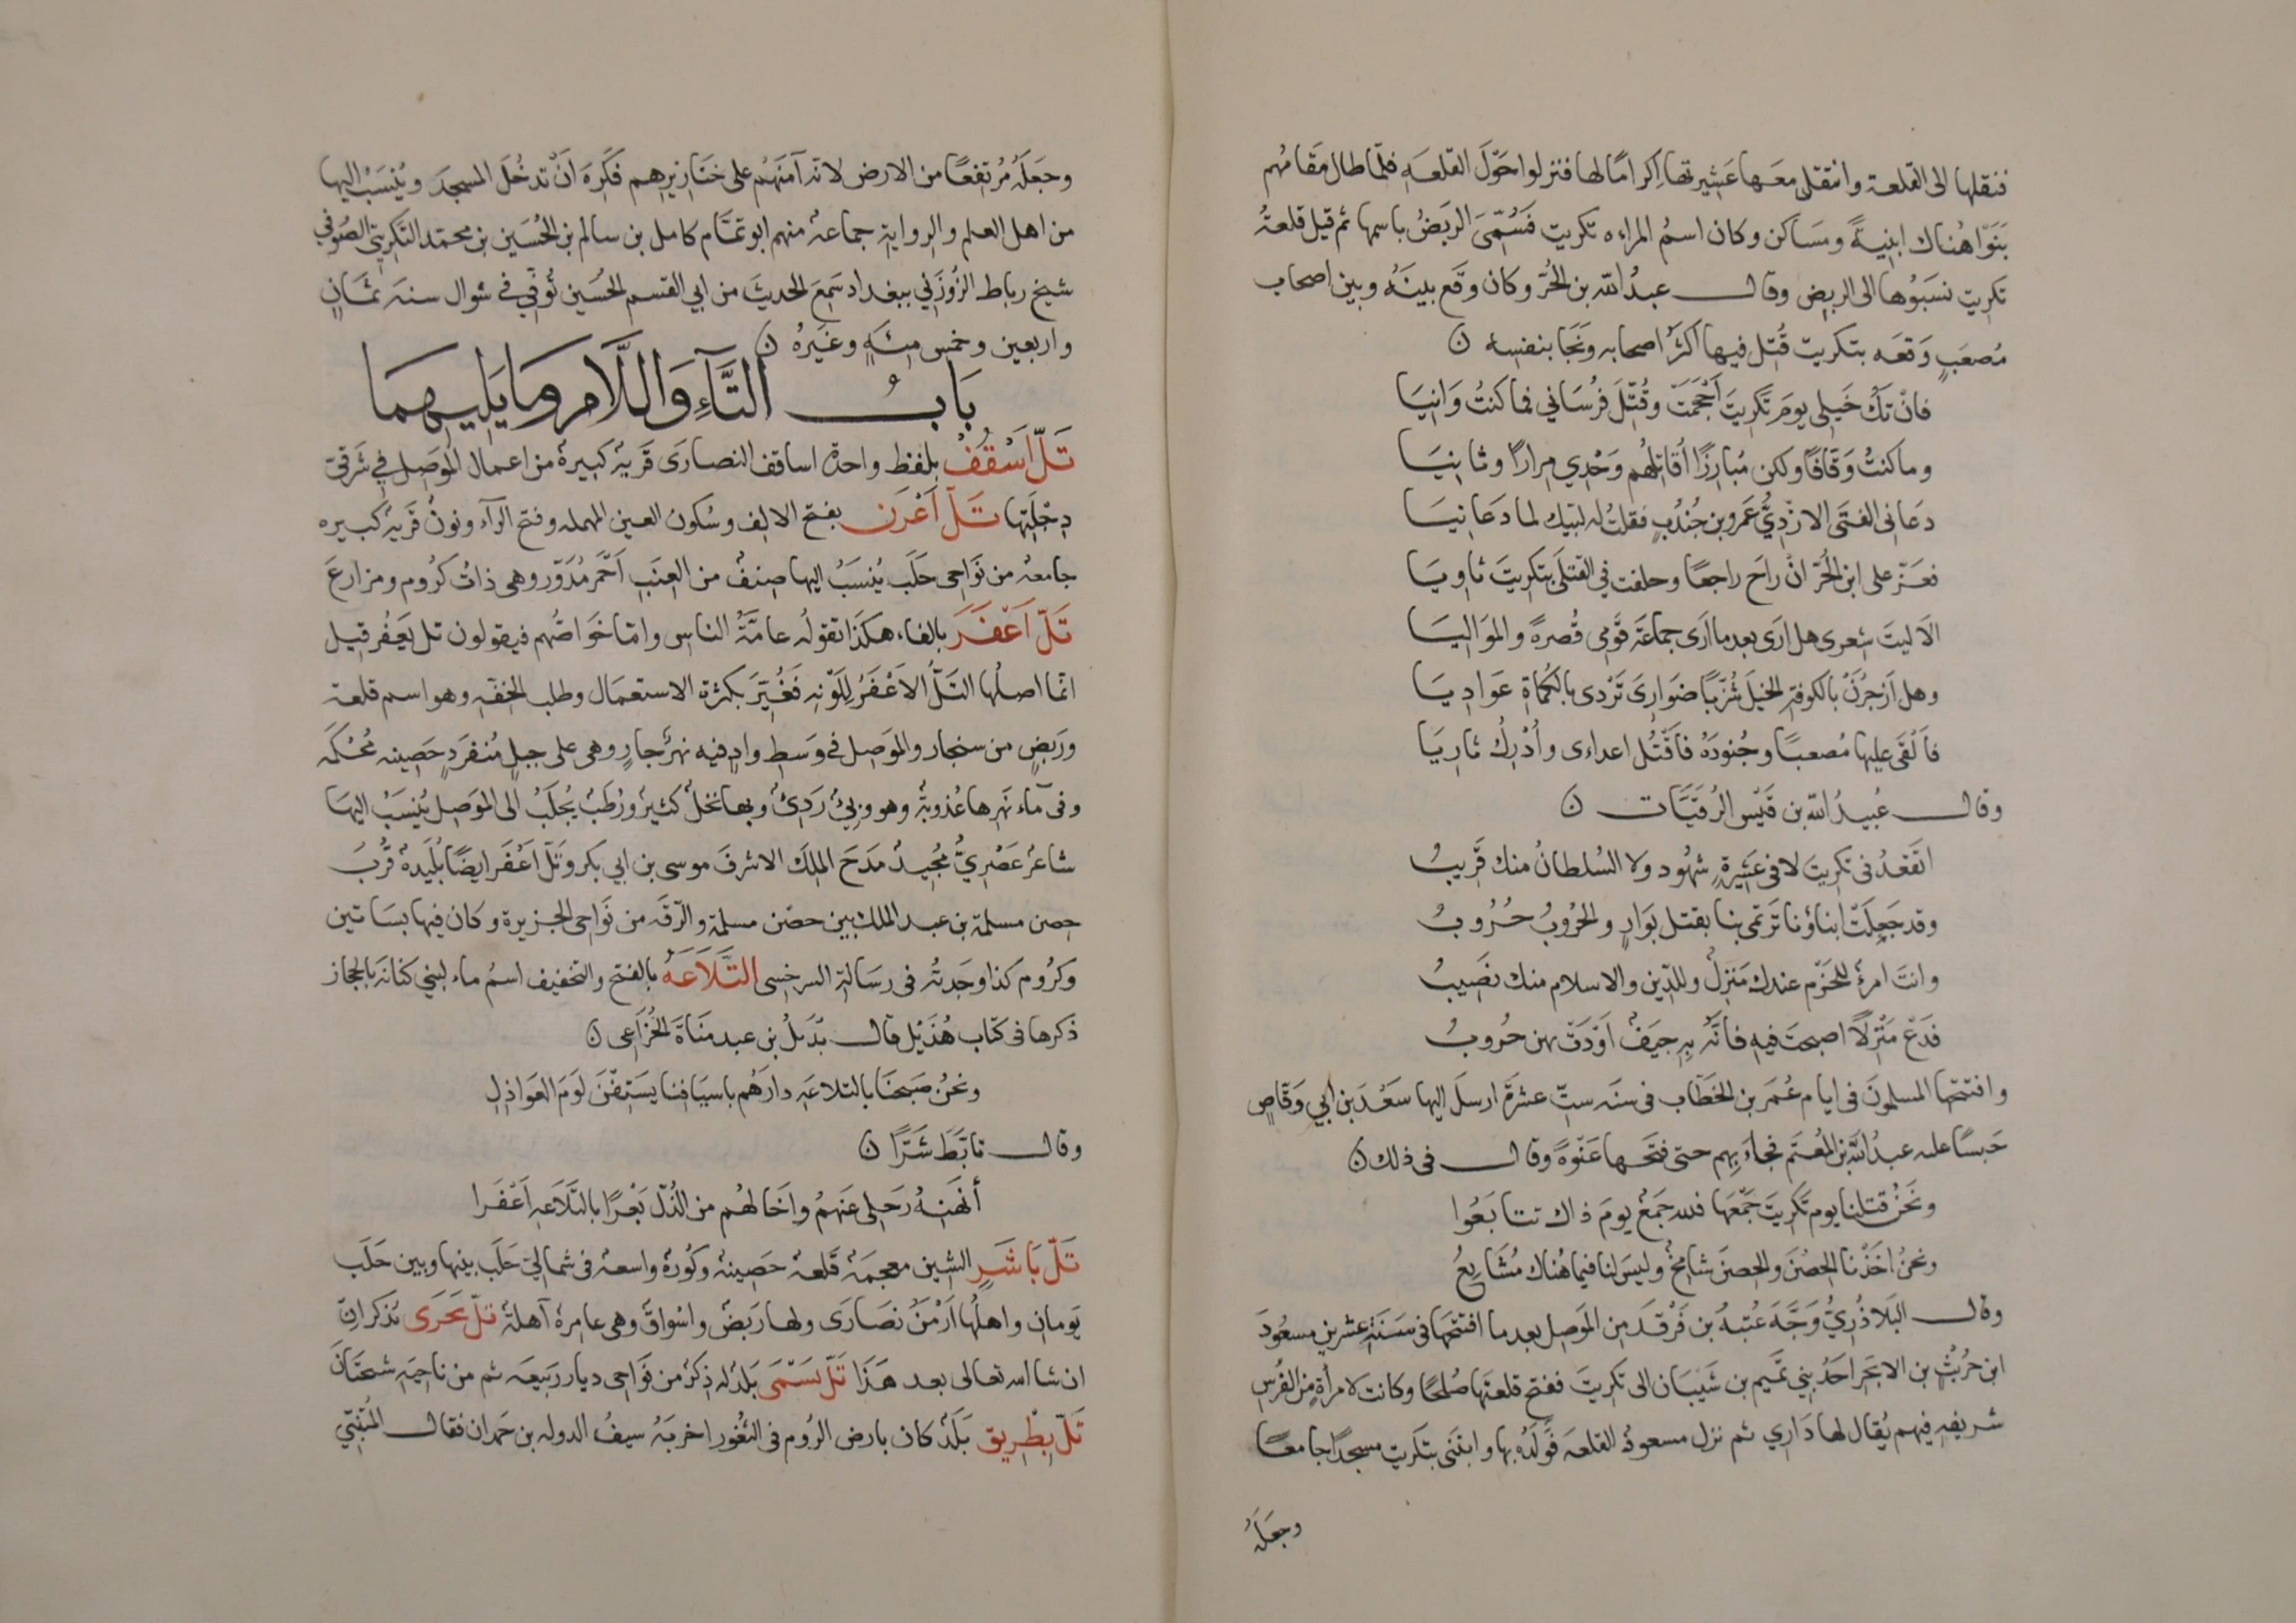 فنقلها الى القلعة وانتقل معها عَشِيرتها اِكرامًا لها فنزلوا حَوْلَ القلعَه فلمّا طال مقامُهم
بَنَوْا هُناك ابنِيةً ومسَاكن وكان اسمُ المراه تكريت فَسُمّىَ الرَبَضُ باسمها ثم قيل قلعةُ
تكريت نسَبُوها الى الربض وقال عبدُ الله بن الحُرّ وكان وقَع بينَهُ وبين اصحاب
مُصعَبٍ وَقعَه بتكريت قُتِل فيها اكثرُ اصحابه ونَجَا بنفسِه ن
فانْ تَكُ خَيلى يومَ تَكرِيتَ اَحْجَمَتْ وقُتِّلَ فُرْسَاني فما كنتُ وَانِيَا
وما كنتُ وَقّافًا ولكن مُبارِزًا اُقاتِلُهُم وَحْدِي مِرارًا وثانِيَا
دعَانى الفتَى الازْدِيُّ عَمرو بن جُندُبٍ فقلتُ له لبّيك لما دعَانِيَا
فعَزّ على ابن الحُرّ انْ راحَ راجعًا وخلفت في القتلَى بتكريتَ ثاوِيَا
الَا ليتَ شِعرى هل ارَى بعد ما ارَى جماعَةَ قَوْمى نُصرةً والموَالِيَا
وهل اَزجُرَنْ بالكوفةِ الخيلَ شُزَّبًا ضوَارِىَ تَرْدى بالكُماةِ عَوَادِيَا
فاَلْقَى عليها مُصعبًا وجُنودَهُ فاقْتُل اعداءى واُدْرِكُ ثارِيَا
وقال عُبيدُ الله بن قَيْس الرُقَيَّات ن
اتَقعُدُ فى تكريتَ لا فى عَشِيرةٍ شهُود ولا السُلطانُ منك قَرِيبُ
وقد جَعِلَتْ ابناؤنا تَرتمى بنا بقتل بَوَارٍ والحُرُوبُ حُرُوبُ
وانتَ امرؤ للحَزْم عندك مَنزِلٌ وللدِّين والاسلام منك نصَيبُ
فدَعْ مَنْزِلًا اصبحتَ فيه فانّهُ بِهِ جِيَفٌ اَوْدَتْ بهن حُروبُ
وافتتحها المسلمونَ فى ايام عُمَر بن الخَطَّاب فى سَنَه ستّ عشرَةَ ارسلَ اليها سَعْدَ بن ابي وَقَّاصٍ
جَيشًا عليه عبدُ الله بن المُعتَم فجاءَ بهِم حتى فتَحها عَنْوةً وقال فى ذلك ن
ونَحْنُ قتلنا يوم تَكريتَ جَمْعَها فللهِ جَمْعٌ يومَ ذاك تتابَعُوا
ونحنُ اخَذْنا الحِصْنَ والحِصنُ شامِخٌ وليسَ لنا فيما هُناك مُشَايِعُ
وقال البَلاذُرِيُّ وَجَّهَ عُتبةُ بن فَرْقدَ من المَوصِل بعدما افتتحها فى سَنَةِ عشرين مسعُودَ
ابن حُرَيْثِ بن الابجَر احَدَ بنِي تَميم بن شَيبَان الى تكريتَ ففتح قلعتَها صُلحًا وكانت لامرأةٍ من الفُرسِ
شريفةٍ فيهم يُقال لها دَاري ثم نزل مسعودٌ القلعَه فوَلَدُهُ بها وابتنَى بتكريت مسجدًا جامعًا
وجعَلَهُ
وجعَلَهُ مُرتفعًا من الارض لانّه آمنَهُم على خنَازيرِهِم فكَرِهَ انْ تدخُلَ المسجدَ ويُنْسَبُ اليها
من اهل العلم والرواية جماعةٌ منهم ابو تمَّام كامل بن سالم بن الحُسَين بن محمّد التكريتي الصُوفي
شيخ رباط الزُوزَنِي ببغداد سَمِعَ الحديثَ من ابي القسم الحُسَين تُوفّي في شوال سنه ثمَانٍ
واربعين وخمس مِئَهٍ وغَيرُهُ ن
بَابُ التَّآءِ وَاللَّامِ وَمَا يَلِيهِمَا
تَلّ اَسْقُفْ بلفظ واحدِ اساقف النصارَى قَريةٌ كبيرةٌ من اعمال المَوصِل في شرقيّ
دِجْلَتِها تَلّ اَعْرَن بفتح الالِف وسُكون العين المهمله وفتح الرآء ونونٌ قَريةٌ كبيره
جامعه من نَوَاحى حَلَب يُنسَبُ اليها صِنفٌ من العِنَبِ اَحْمَر مُدَوّر وهى ذاتُ كرُوم ومزارعَ
تَلّ اَعْفَرَ بالفاء هكذا تقولُه عامّةُ الناس وامّا خَواصُّهم فيقولون تل يَعفُر قيل
انما اصلُها التَلُّ الاَعْفَرُ لِلَوْنِه فَغُيِّرَ بكثرة الاستعمَال وطلب الخفّه وهو اسم قلعة
ورَبَضٍ من سنجار والمَوصِل فى وَسَطِ وادٍ فيه نهرٌ جارٍ وهى على جبلٍ مُنفَردٍ حَصِينه مُحْكَمه
وفى مآء نَهرِها عُذوبةٌ وهو وَبِيٌّ رَدِيٌّ وبها نخلٌ كثيرٌ ورُطَبٌ يُجلَبُ الى المَوصِل يُنسَبُ اليهَا
شاعرٌ عَصْرِيٌّ مُجِيدٌ مَدَحَ الملِكَ الاشرفَ موسى بن ابي بكر وتَلّ اَعْفَر ايضًا بُلَيدةٌ قُرْبَ
حصن مسلمة بن عبد الملك بين حصْن مسلمة والرَّقّه من نَوَاحى الجزيرة وكان فيها بسَاتين
وكرُوم كذا وجَدتُه فى رسَالة السرخسى التَّلَاعَةُ بالفتح والتخفيف اسمُ ماء لبني كنانَه بالحجاز
ذكرها فى كتاب هُذَيْل قال بُدَيلُ بن عبد منَاةَ الخُزَاعى ن
ونحنُ صَبحنَا بالتلاعَه دارَهُم باسيَافنا يَسبِقْنَ لَومَ العوَاذلِ
وقال تابَّطَ شَرًّا ن
أنَهْنِهُ رَحلِى عَنهُمُ واِخَالهُم من الذُلّ بَعْرًا بالتَّلَاعةِ اَعْفَرا
تَلّ بَاشِرٍ الشين معجمَةٌ قَلعةٌ حَصِينةٌ وكُورةٌ واسعةٌ فى شمالىّ حَلَب بينها وبين حَلَب
يَومانِ واهلُها اَرْمَنٌ نصَارَى ولها رَبَضٌ واسْواقٌ وهى عامرةٌ آهلةٌ تَلّ بَحَرَى يُذكرانِ
ان شا الله تعالى بعد هَذَا تَلّ بَسْمَى بَلَدٌ له ذِكرٌ من نَوَاحى ديار رَبيعَه ثم من ناحيَهِ شَبَختَانَ
تَلّ بِطْرِيق بَلَدٌ كان بارض الرُوم فى الثغُور اخربَهُ سيفُ الدوله بن حمدان فقال المُتنبّي